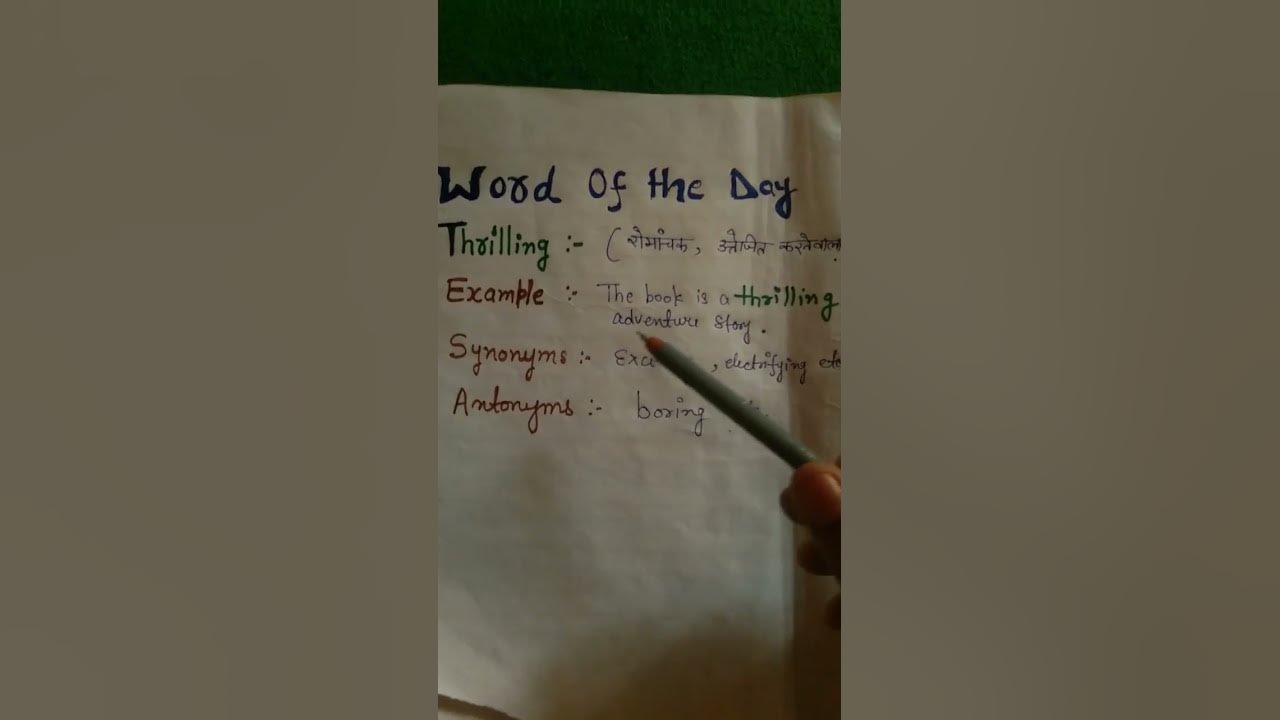 Word Of the Day
Thrilling :- (रोमांचक, उत्तेजित करनेवाला
Example :- The book is a thrilling
adventure story.
Synonyms :- , electrifying etc
Antonyms :- boring